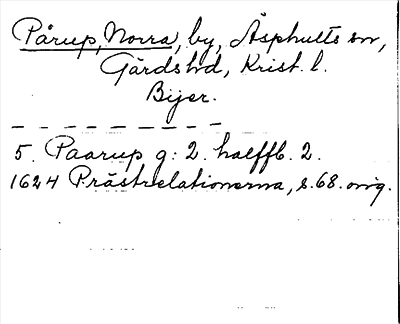 Pårup, Norra, by, Äsphults sn,
Gärds hd, Krist. l.
Bijer.
5. Paarup g: 2. halffb. 2.
1624 Prästrelationerna, s. 68. orig.